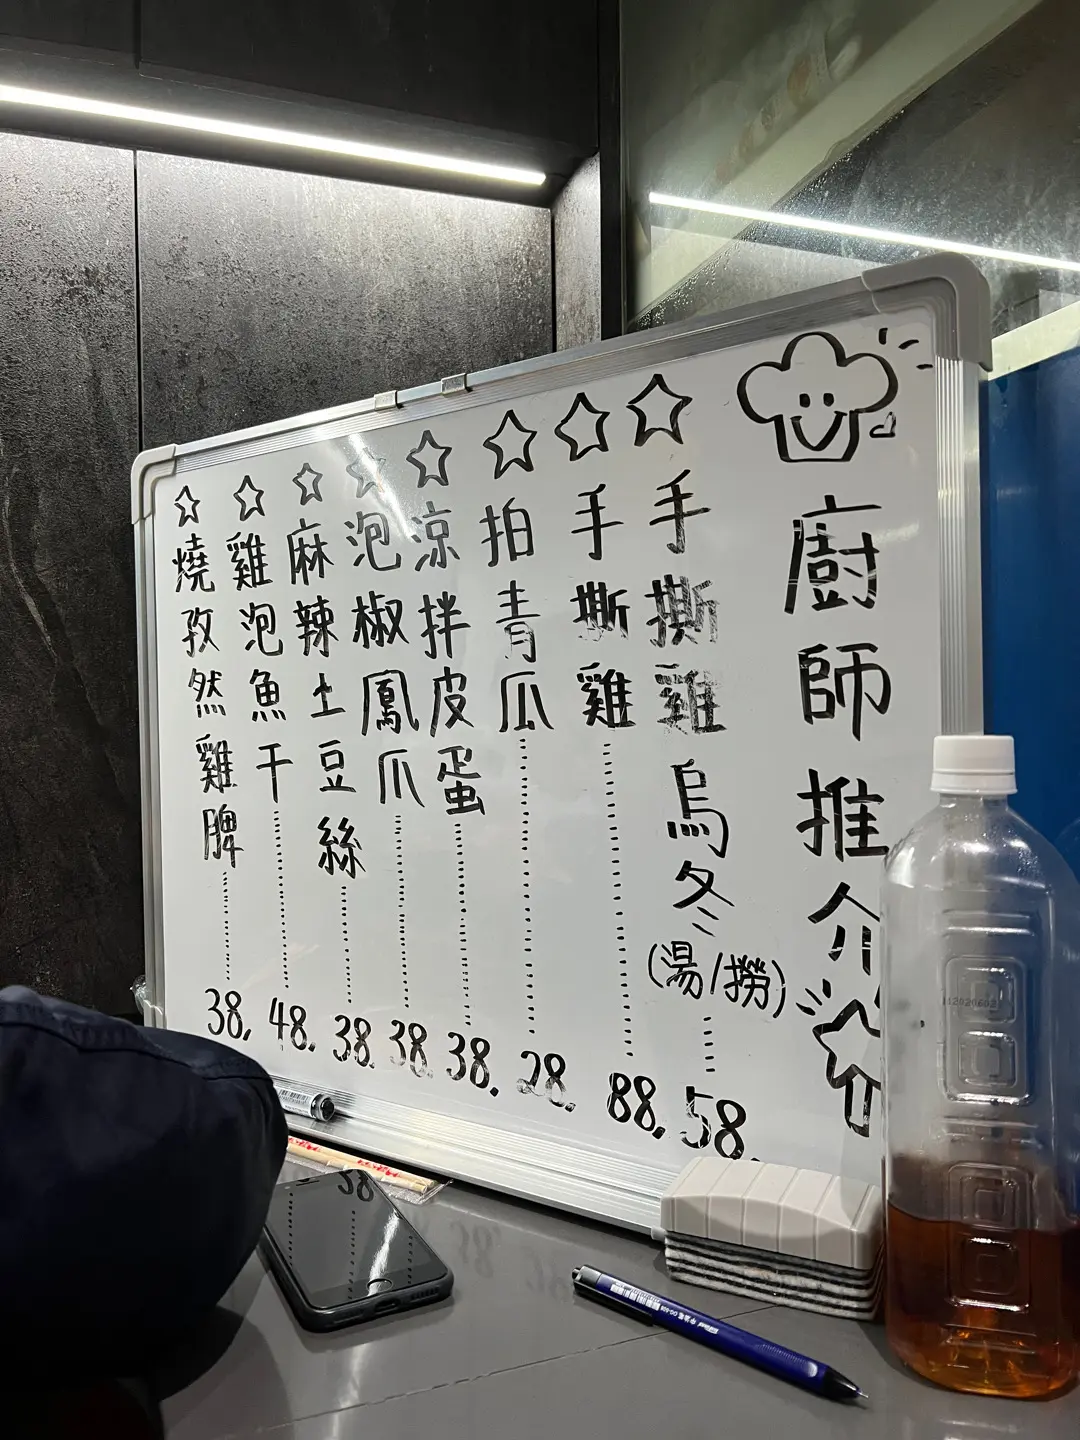 廚師推介
手撕雞烏冬(湯/撈)......58.
手撕雞......88.
拍青瓜......28.
涼拌皮蛋......38.
泡椒鳳爪......38.
麻辣土豆絲......38.
雞泡魚干......48.
燒孜然雞髀......38.
28